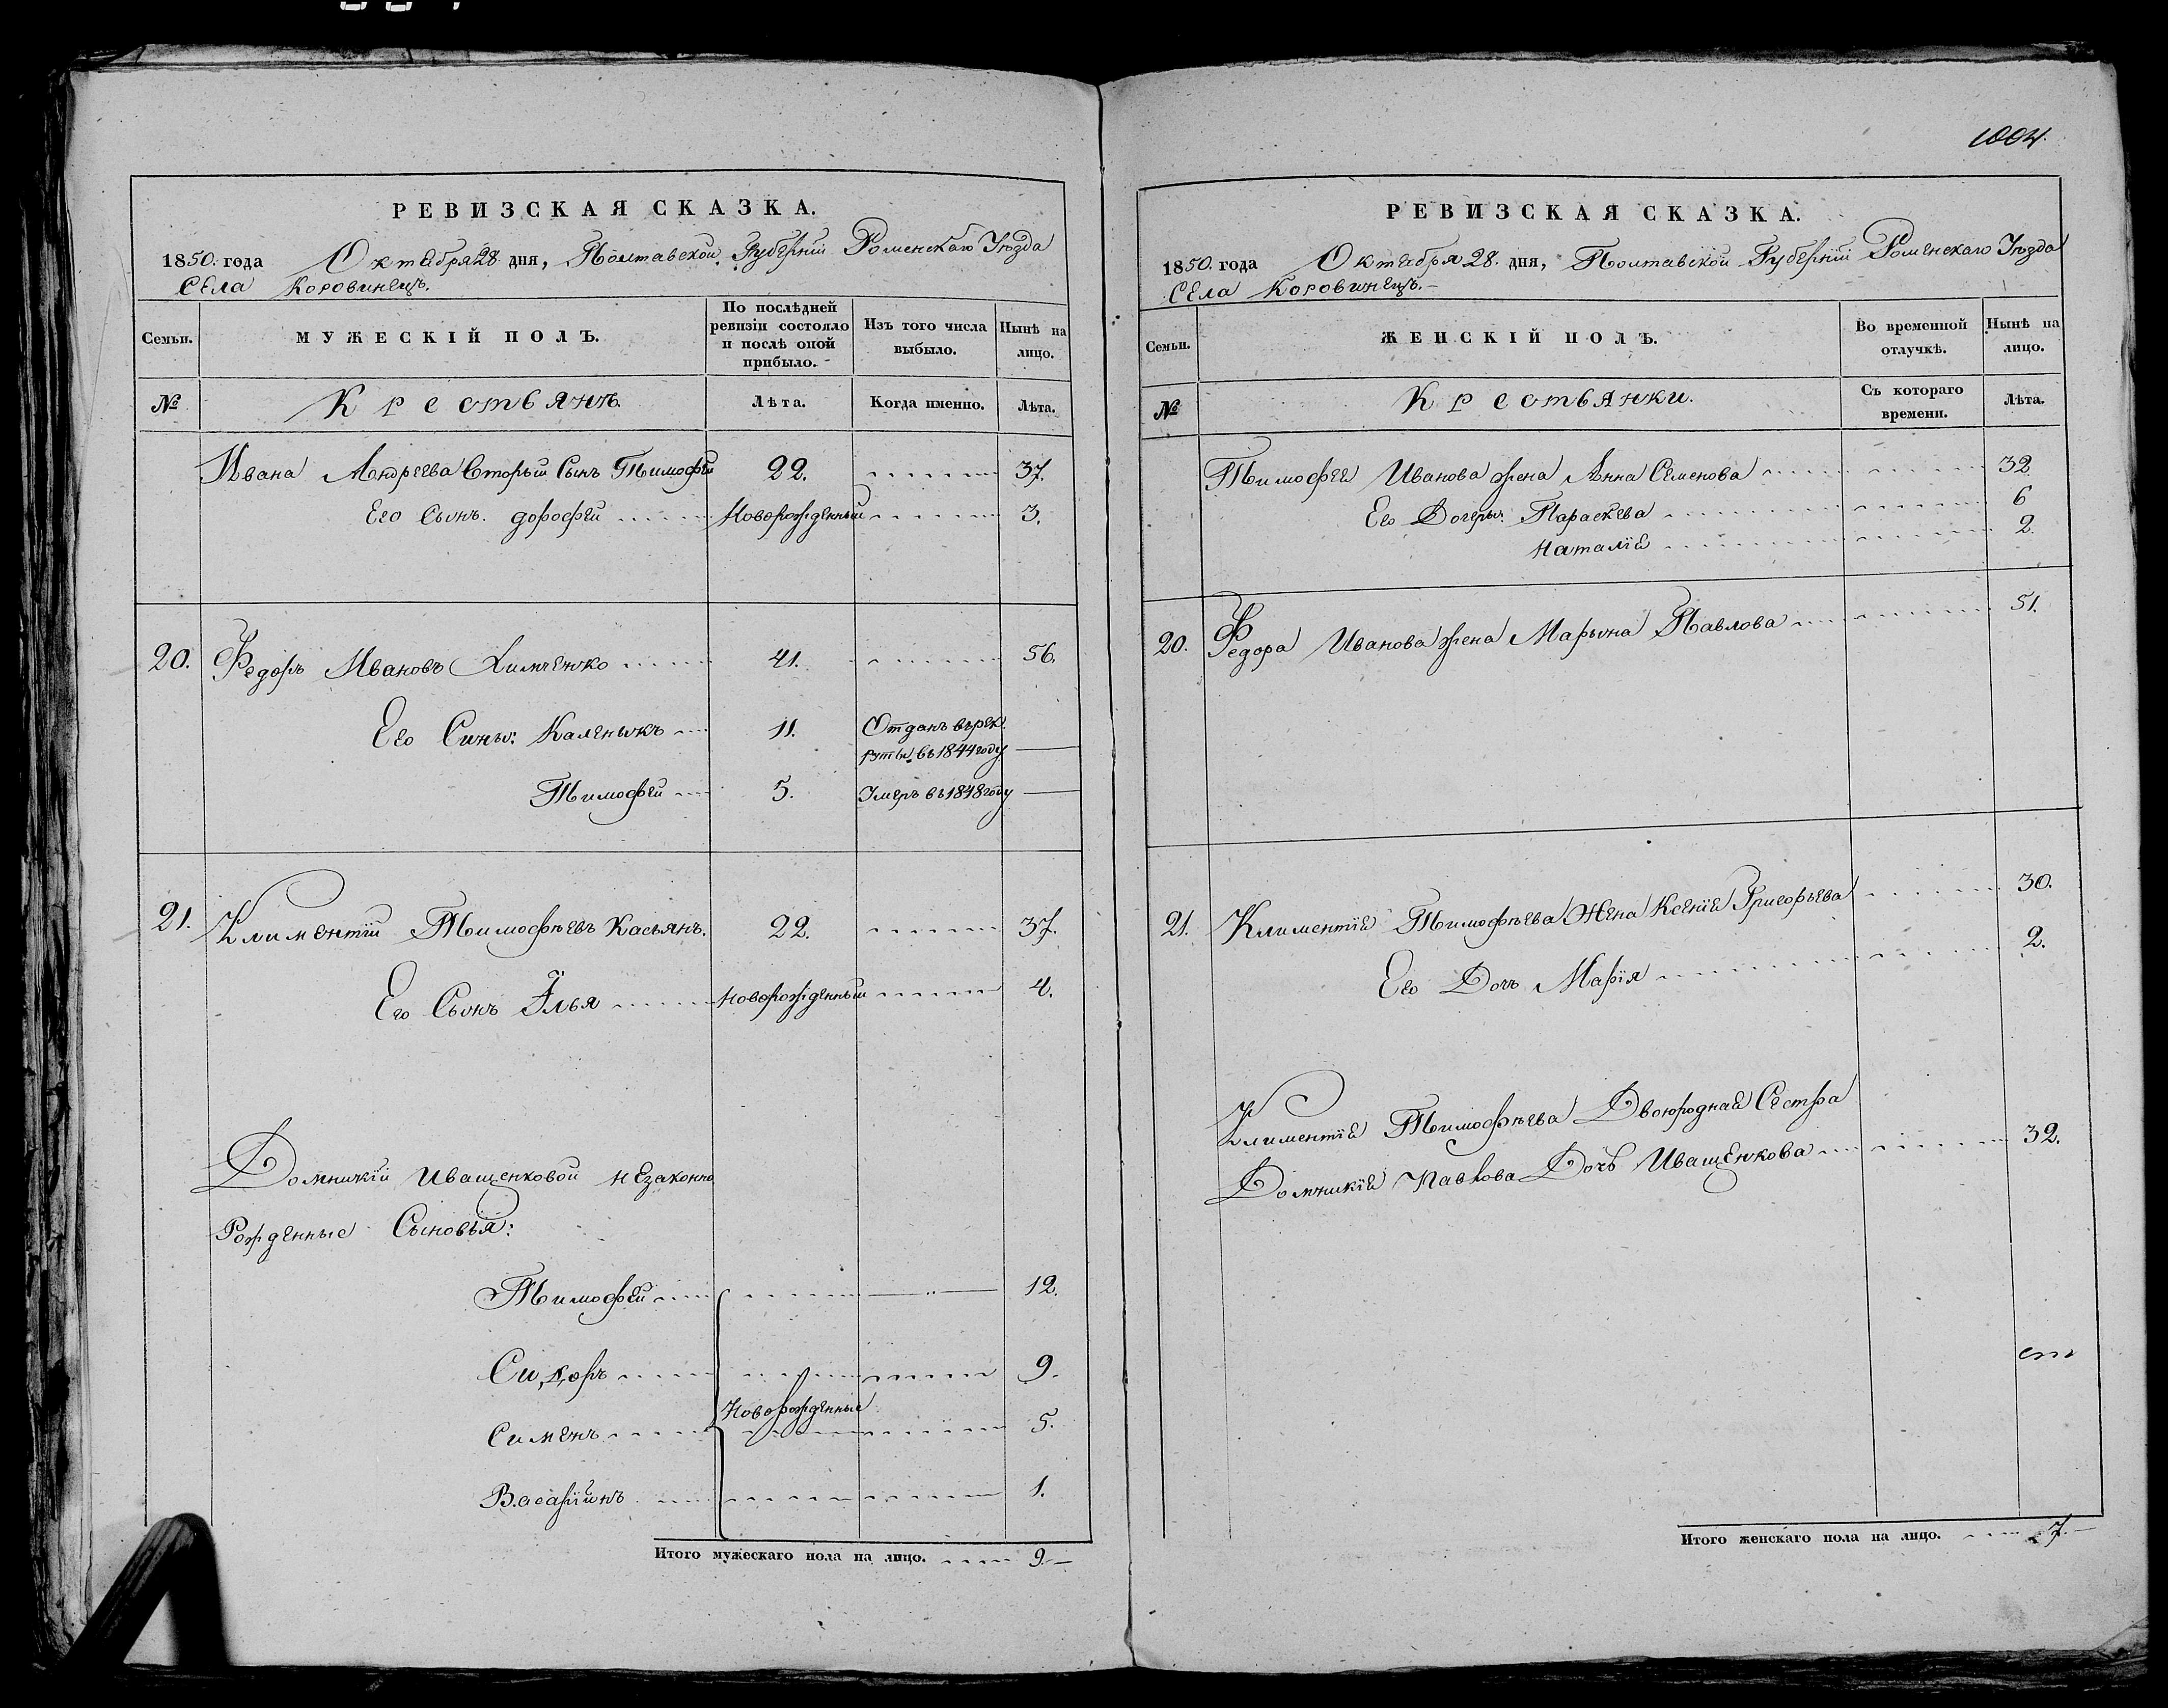 РЕВИЗСКАЯ СКАЗКА.
1850. года Октября 28. дня, Полтавской Губерніи Роменскаго Уѣзда
Села Коровинецъ.
Семьи. МУЖЕСКІЙ ПОЛЪ. По послѣдней ревизіи состояло и послѣ оной прибыло. Изъ того числа выбыло. Нынѣ на лицо.
№ Крестьянъ. Лѣта. Когда именно. Лѣта.
Ивана Андреева Вторый Сынъ Тимофей 22. 37.
Его Сынъ. Дорофей Новорожденный 3.
20. Федоръ Ивановъ Химченко 41. 56.
Его Сины: Каленыкъ 11. Отданъ въ рек
руты въ 1844 году
Тимофей 5. Умеръ въ 1848 году
21. Климентій Тимофѣевъ Касьянъ. 22. 37.
Его Сынъ Илья Новорожденный 4.
Домникіи Иващенковой незаконно
Рожденные Сыновья:
Тимофей 12.
Сидоръ 9.
Новорожденные
Сименъ 5.
1.
Итого мужескаго пола на лицо. 9.
1004.
РЕВИЗСКАЯ СКАЗКА.
1850. года Октября 28. дня, Полтавской Губерніи Роменскаго Уѣзда
Села Коровинецъ.
Семьи. ЖЕНСКІЙ ПОЛЪ. Во временной отлучкѣ. Нынѣ на лицо.
№ Крестьянки. Съ котораго времени. Лѣта.
Тимофея Иванова жена Анна Семенова 32
Его Дочеры: Параскева 6
Наталія 2.
20. Федора Иванова жена Марына Павлова 51.
21. Климентія Тимофѣева Жена Ксенія Григорьева 30.
Его Дочь Марія 2.
Климентія Тимофѣева Двоюродная Сестра
Домникія Павлова Дочь Иващенкова 32.
Итого женскаго пола на лицо. 7.